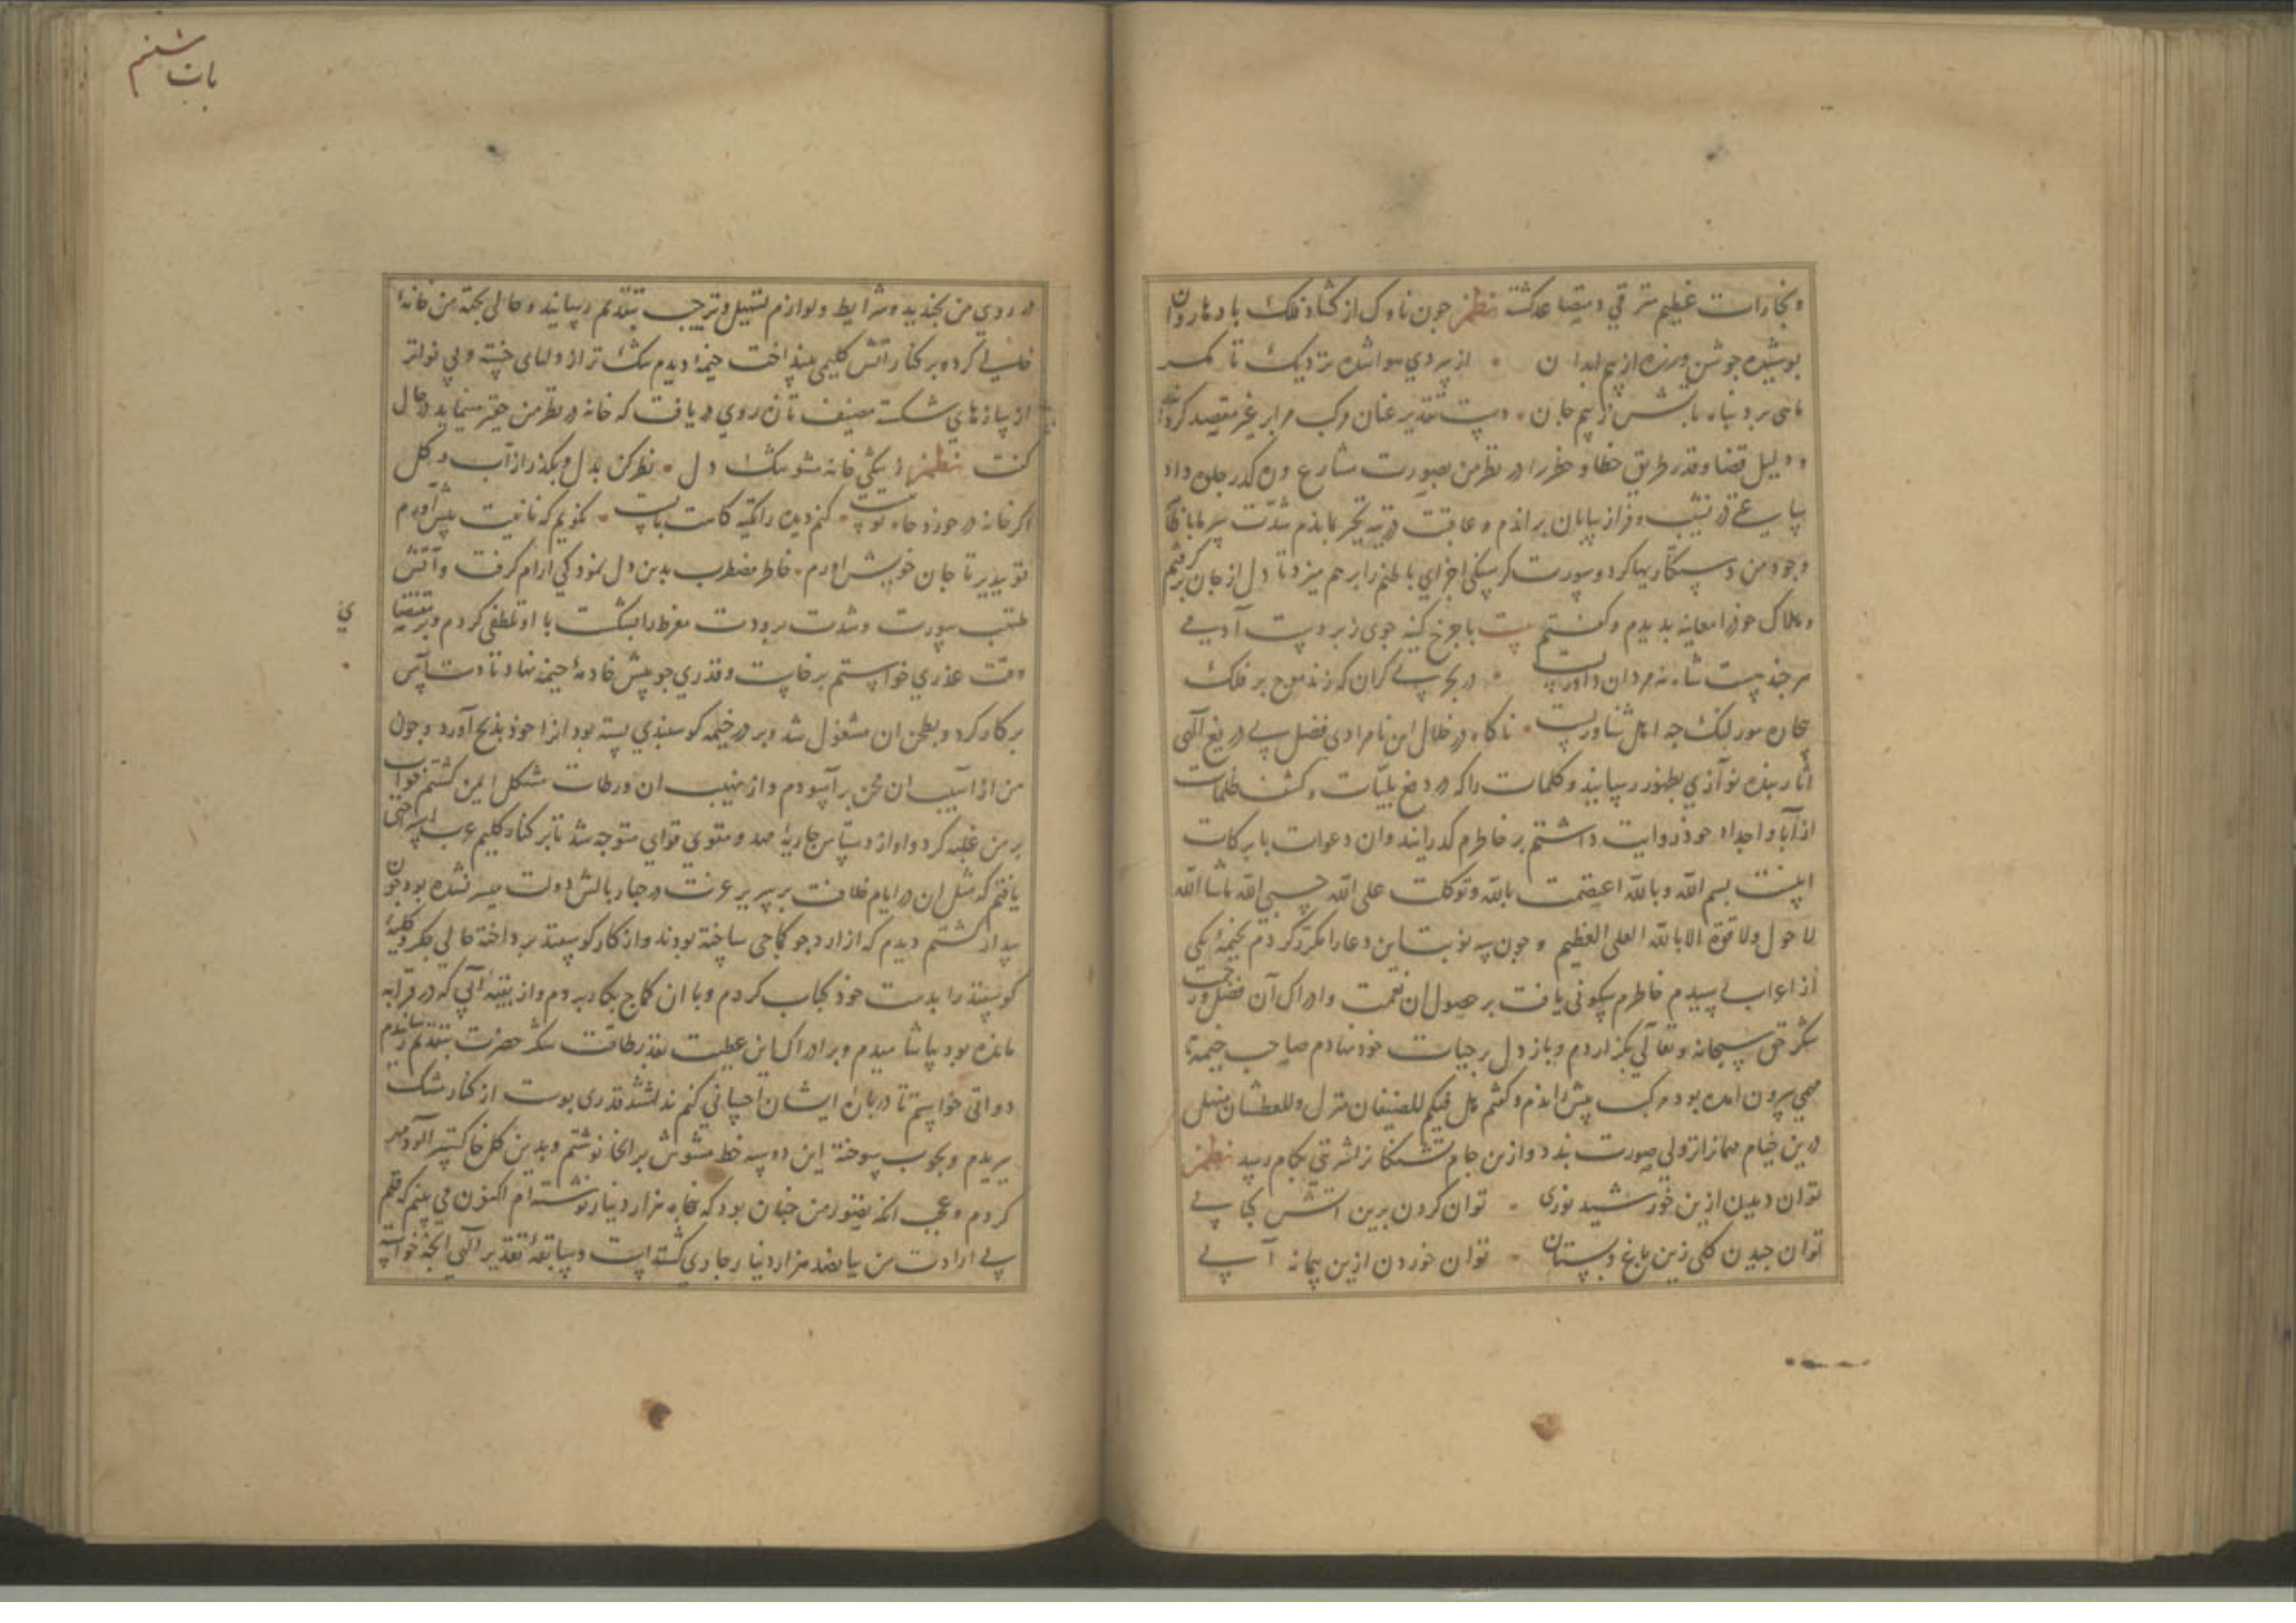 و بخارات غلیظ مترقی و متصاعد گشته نظم چون ناوک از گشاد فلک باد ها روان
پوشیده جوشن وزره از بیم ابدان از سردی هوا شده نزدیک تا
ماهی برد پناه بآتش ز بیم جان دست تقدیر عنان مرکب مرا بر غیر مقصد
و دلیل قضا و قدر طریق خطا و خطر را در نظر من بصورت مشارع
ساعتی در نشیب و فراز بیابان براندم و عاقبت در تیه تحیر بماندم شدت سرما با
وجود من دستکاریها کرد و سورت گرسنگی اجزای باطنم را برهم میزد تا دل از جان برگرفتم
و هلاک خود را معاینه بدیدم و گفتم بیت با چرخ کینه جوی زبردست آدمی
هر چند هست شاه نه مردان داورست در بحر بی کران که زند موج بر فلک
بیچاره مور لنگ چه اهل شناورست ناگاه در خلال این نامرادی فضل بی دریغ الهی
آثار بنده نوازی بظهور رسانید و کلمات را که در دفع بلیات و کشف ظلمات
از آبا و اجداد خود روایت داشتم بر خاطرم گذرانید و آن دعوات با برکات
اینست بسم الله و بالله اعتصمت بالله و توکلت علی الله حسبی الله ماشا الله
لا حول ولا قوة الا بالله العلی العظیم و چون سه نوبت این دعا را مکرر کردم بخیمۀ یکی
از اعراب رسیدم خاطرم سکونی یافت بر حصول آن نعمت و ادراک آن فضل و رحمت
شکر حق سبحانه و تعالی بگزاردم و باز دل بر حیات خود نهادم صاحب خیمه تا
بیرون آمده بود مرکب پیش راندم و گفتم هل فیکم للضیفان منزل وللعطشان منهل
درین خیام مهمانرا نزولی صورت بندد و ازین جام تشنگانرا شربتی بکام رسد نظم
توان دیدن ازین خورشید نوری توان کردن برین آتش کبابی
توان چیدن گلی زین باغ و بستان توان خوردن ازین پیمانه آبی
باب ششم
در روی من بخندید و شرایط و لوازم تبجیل و ترحیب بتقدیم رسانید و حالی بجهة من خانۀ
خالی کرد و بر کنار آتش گلیمی بینداخت خیمۀ دیدم تنک تر از دلهای خسته و بی نواتر
از پیازهای شکسته مضیف تا آن روی دریافت که خانه در نظر من حقیر مینماید در حال
گفت نظم ز تنگی خانه مشو تنگ دل نظر کن بدل و بگذر از آب و گل
اگر خانه در خورد جاه تو نیست کنم دیده را تکیه گاهت بایست نگویم که نانیت پیش آورم
تو بپذیر تا جان خویش آورم خاطر مضطرب بدین دل نمودگی آرام گرفت و آتش
ملتهب سورت و شدت برودت مفرط را بشکست با او تلطفی کردم و بر مقتضای
وقت عذری خواستم برخاست و قدری جو پیش خادمۀ خیمه نهاد تا دست آس
بر کار کرد و بطحن آن مشغول شد و بر در خیمه گوسفندی بسته بود آنرا خود بذبح آورد و چون
من از آسیب آن محن برآسودم و از نهیب آن ورطات مشکل ایمن گشتم خواب
بر من غلبه کرد و آواز دستاس جاریۀ ممد و مقوی قوای متوجه شد تا بر کنار گلیم عرب استراحتی
یافتم که مثل آن در ایام خلافت بر سریر عزت و چهار بالش دولت میسر نشده بود چون
بیدار گشتم دیدم که از آرد جو کماجی ساخته بودند و از کار گوسفند پرداخته حالی جگر و کلیۀ
گوسفند را بدست خود کباب کردم و با آن کماج بکار بردم و از بقیۀ آبی که در قرابه
مانده بود بیاشامیدم و بر ادراک این عطیت بقدر طاقت شکر حضرت بتقدیم رسانیدم
دواتی خواستم تا در بارۀ ایشان احسانی کنم نداشتند قدری پوست از کنار مشک
ببریدم و بچوب سوخته این دو سه خط مشوش بر آنجا نوشتم و بدین گل خاکستر آلود مهر
کردم و عجب آنکه تصور من چنان بود که پنجاه هزار دینار نوشته ام اکنون می بینم که قلم
بی ارادت من پانصد هزار دینار جاری گشته است و سابقۀ تقدیر الهی آنچه خواسته